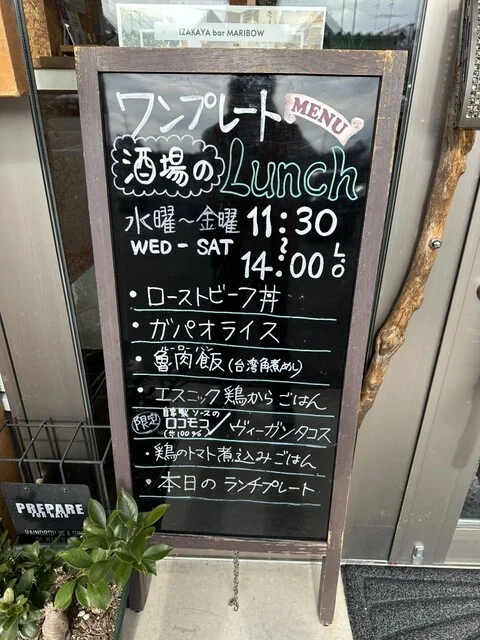 IZAKAYA bar MARIBOW
ワンプレート MENU
酒場の Lunch
水曜～金曜 11:30
WED - SAT ～
14:00 LO
・ローストビーフ丼
・ガパオライス
・魯肉飯(台湾角煮めし)
ルーローハン
・エスニック鶏からごはん
限定 自家製ソースの ロコモコ(牛100%)/ヴィーガンタコス
・鶏のトマト煮込みごはん
・本日のランチプレート
PREPARE
FOR RAIN
RAINDROP IS A DR